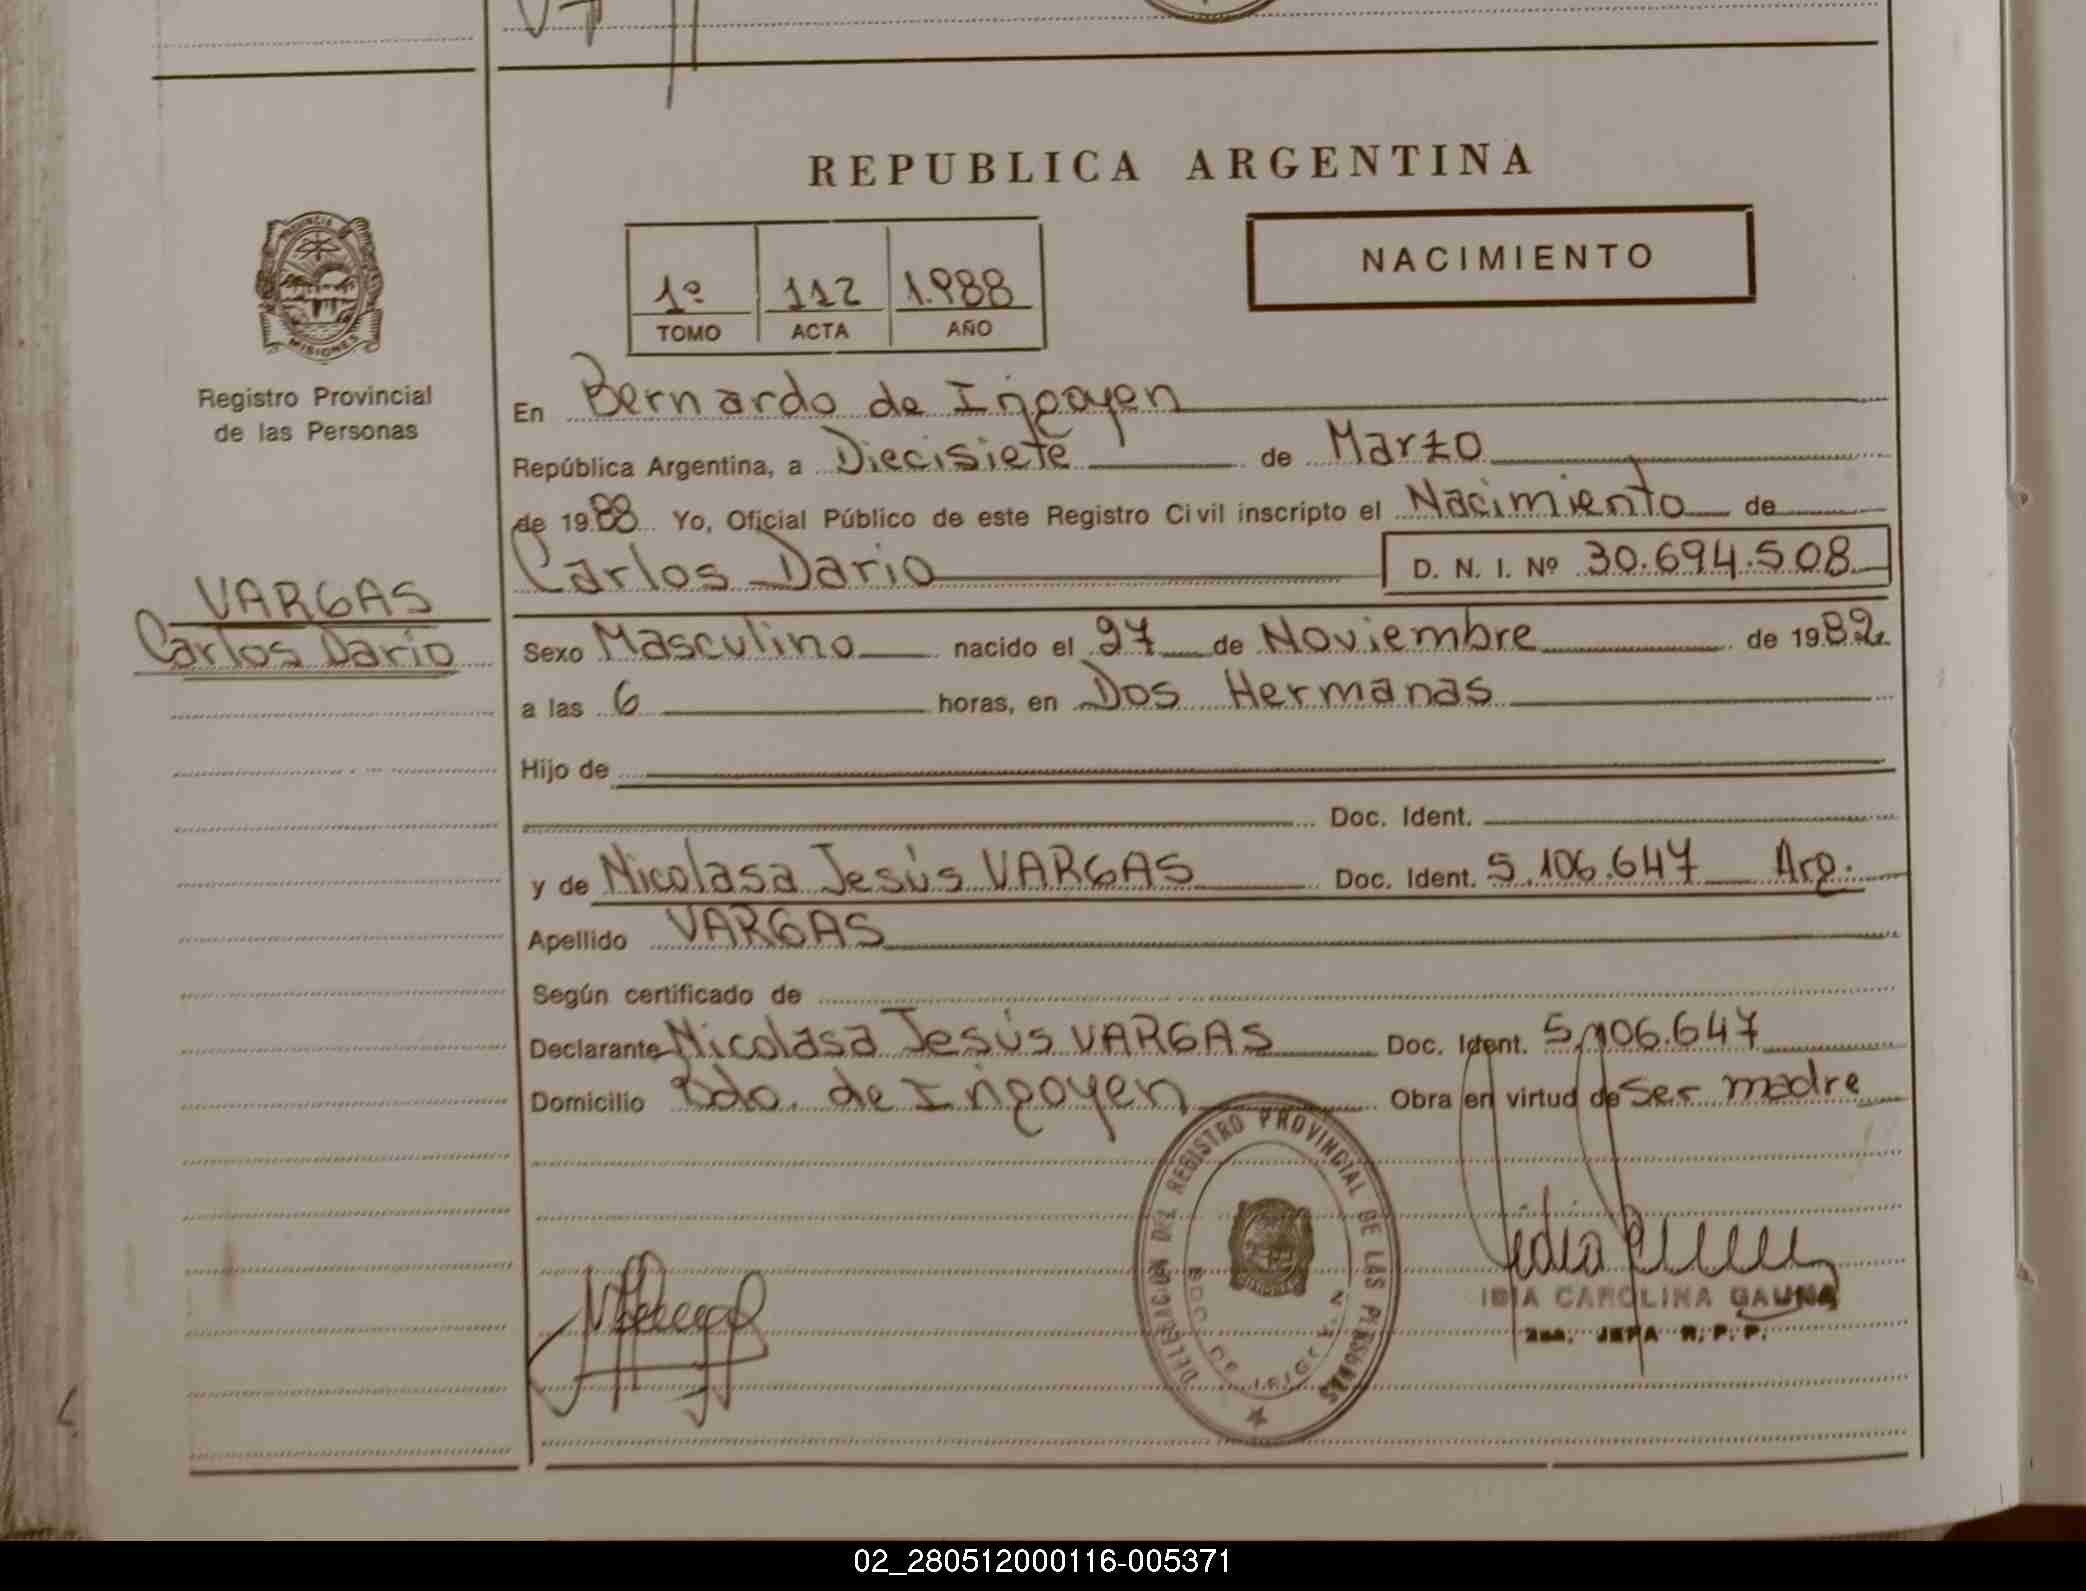 REPUBLICA ARGENTINA
NACIMIENTO
1º 112 1.988
TOMO ACTA AÑO
PROVINCIA
MISIONES
Registro Provincial
de las Personas
VARGAS
Carlos Dario
En Bernardo de Irigoyen
República Argentina, a Diecisiete de Marzo
de 1988 Yo, Oficial Público de este Registro Civil inscripto el Nacimiento de
Carlos Dario D. N. I. Nº 30.694.508
Sexo Masculino nacido el 27 de Noviembre de 1982
a las 6 horas, en Dos Hermanas
Hijo de
Doc. Ident.
y de Nicolasa Jesús VARGAS Doc. Ident. 5.106.647 Arg.
Apellido VARGAS
Según certificado de
Declarante Nicolasa Jesús VARGAS Doc. Ident. 5.106.647
Domicilio Bdo. de Irigoyen Obra en virtud de ser madre
DELEGACION DEL REGISTRO PROVINCIAL DE LAS PERSONAS
BDO. DE IRIGOYEN
CAROLINA GAUNA
JEFA R. P. P.
02_280512000116-005371